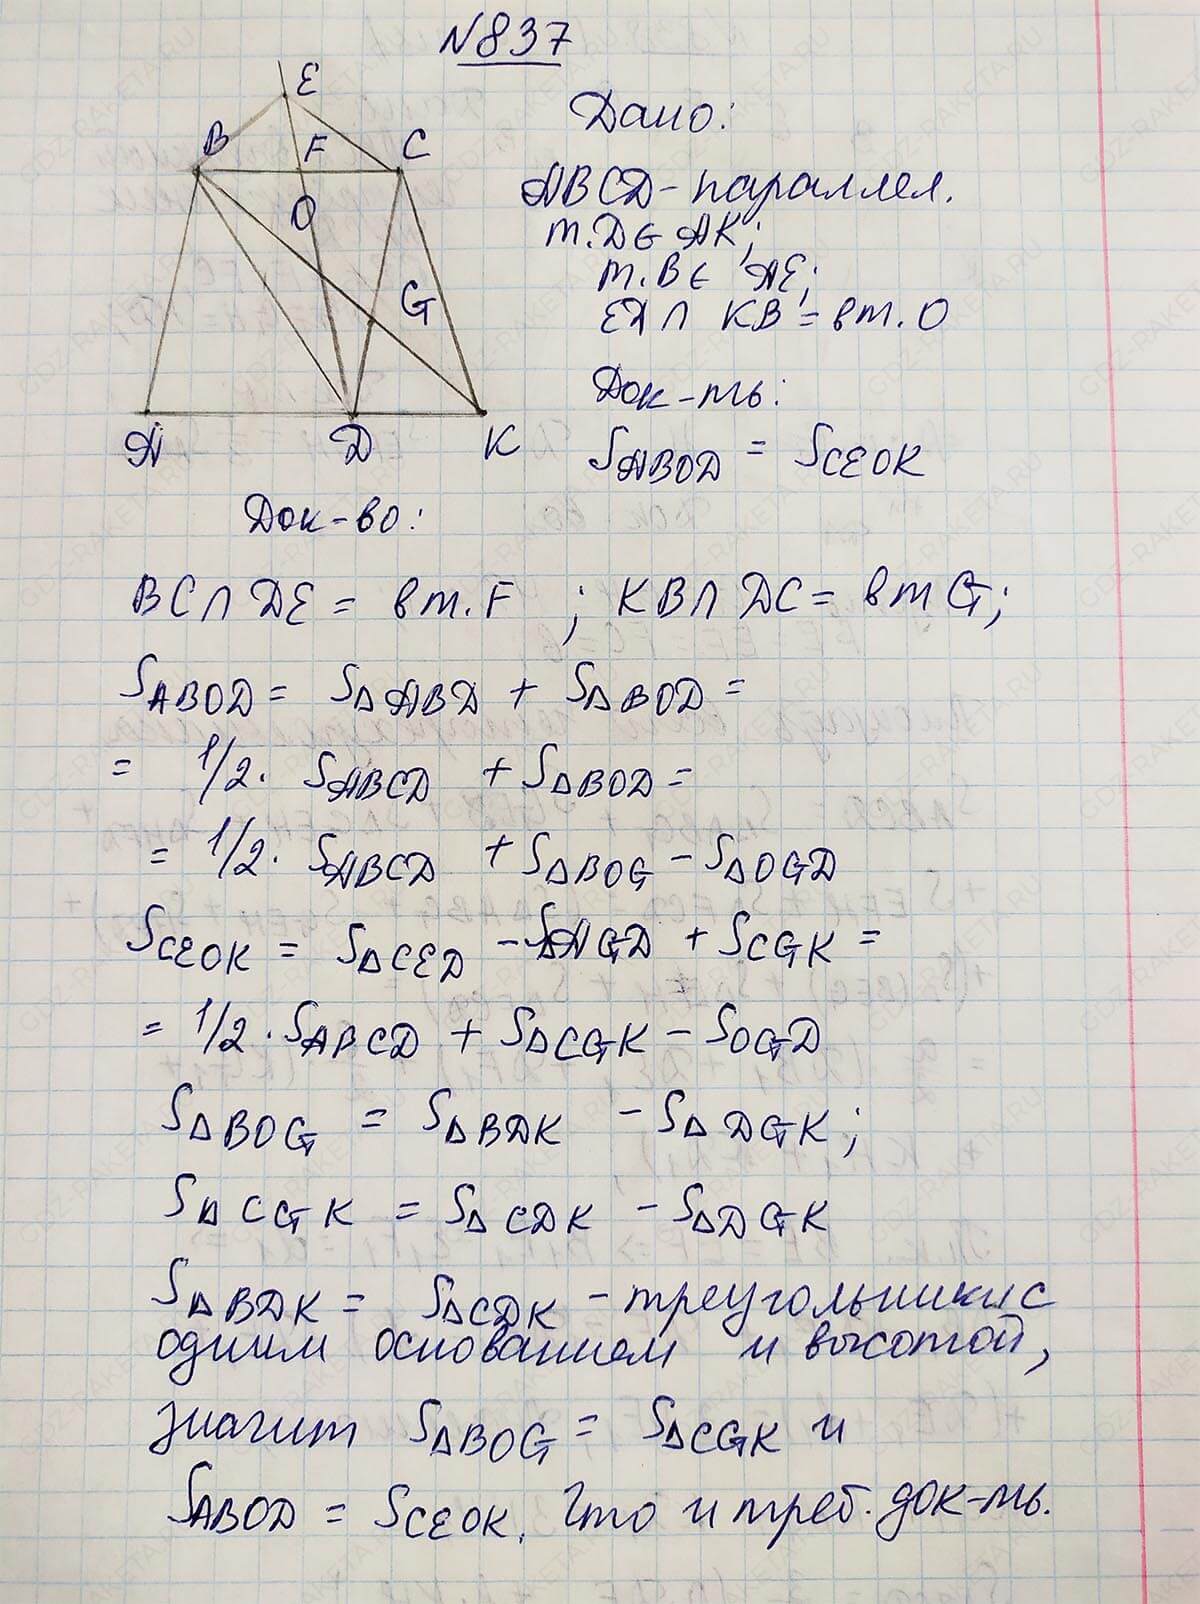 №837
E
B F C
O
G
A D K
Дано:
ABCD - параллел.
т. D ∈ AK;
т. B ∈ AE;
ED ∩ KB = в т. O
Док-ть:
SABOD = SCEOK
Док-во:
BC ∩ DE = в т. F ; KB ∩ DC = в т G;
SABOD = S△ABD + S△BOD =
= 1/2 · SABCD + S△BOD =
= 1/2 · SABCD + S△BOG - S△OGD
SCEOK = S△CED - S△OGD + SCGK =
= 1/2 · SABCD + S△CGK - SOGD
S△BOG = S△BDK - S△DGK;
S△CGK = S△CDK - S△DGK
S△BDK = S△CDK - треугольники с
одним основанием и высотой,
значит S△BOG = S△CGK и
SABOD = SCEOK. Что и треб. док-ть.